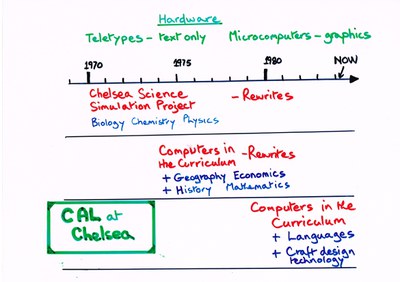 Hardware
Teletypes - text only Microcomputers - graphics
1970 1975 1980 NOW
Chelsea Science
Simulation Project - Rewrites
Biology Chemistry Physics
Computers in
the Curriculum - Rewrites
+ Geography Economics
+ History Mathematics
CAL at
Chelsea
Computers in the
Curriculum
+ Languages
+ Craft design
technology